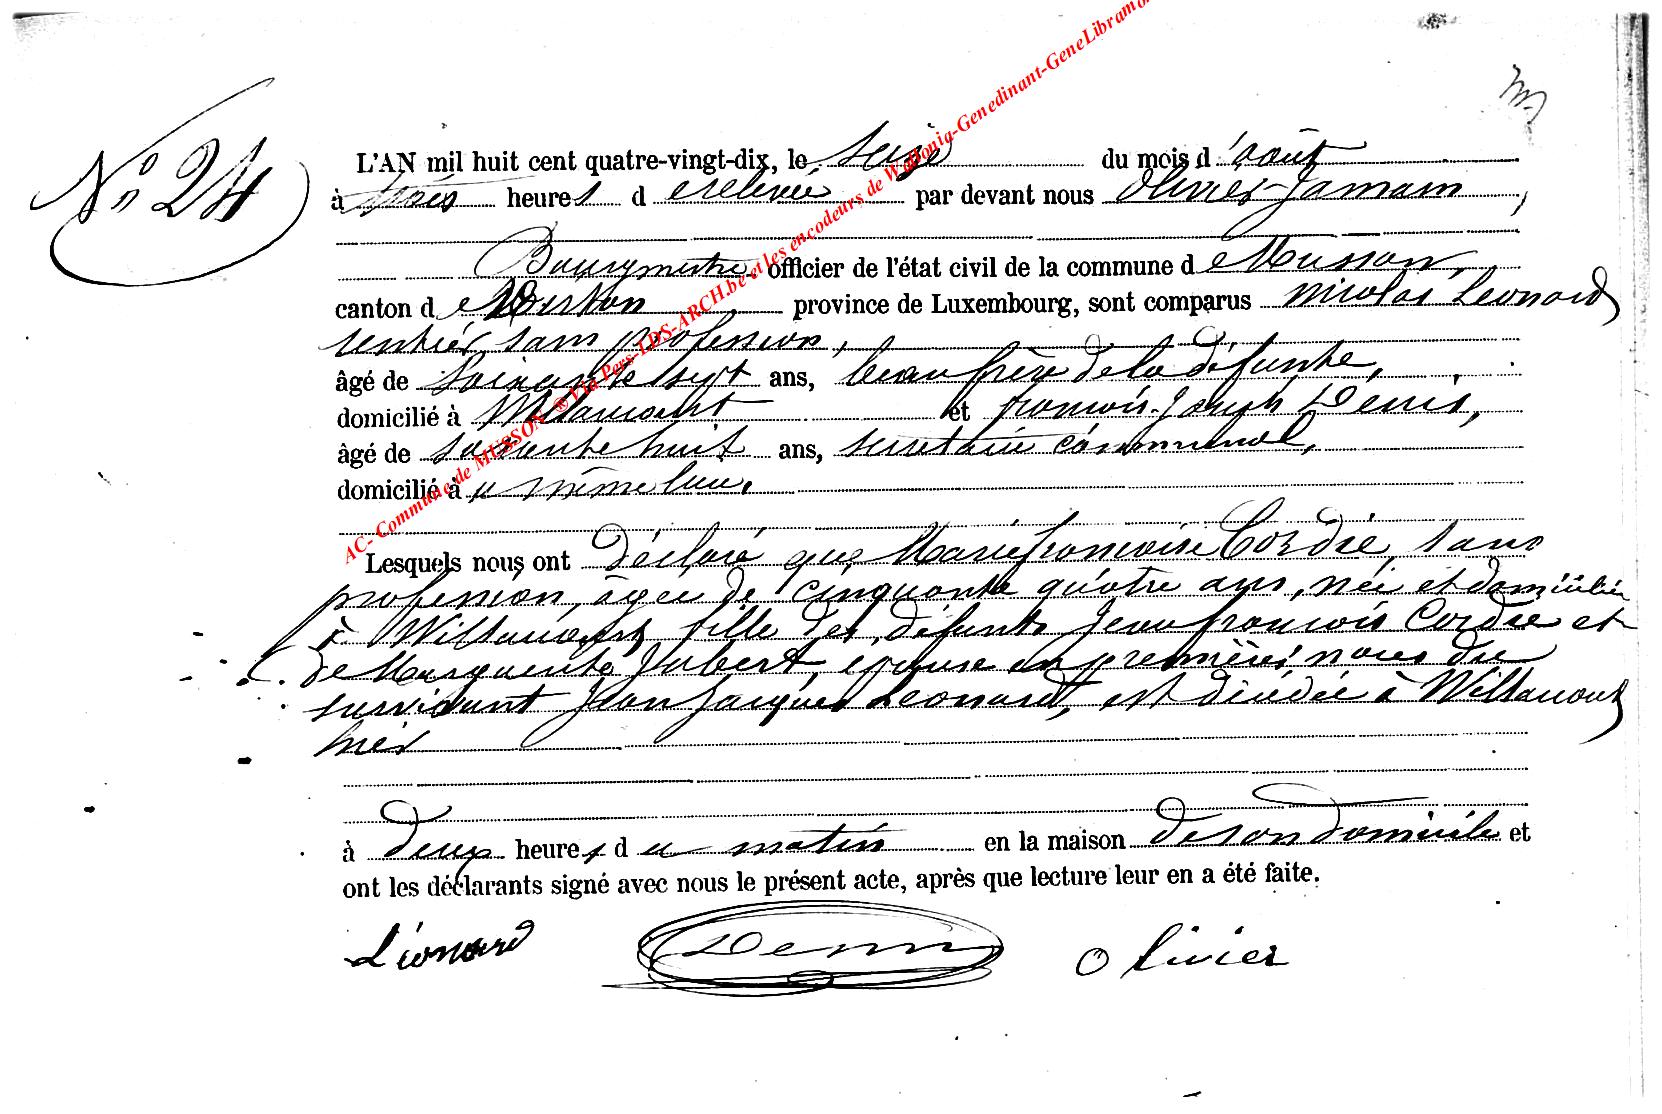 No 24
L'AN mil huit cent quatre-vingt-dix, le seize du mois d'août
à trois heures de relevée par devant nous Olivier Jamain,
Bourgmestre officier de l'état civil de la commune de Musson,
canton de Virton province de Luxembourg, sont comparus Nicolas Leonard
rentier, sans profession,
âgé de soixante sept ans, beau frère de la défunte,
domicilié à Willancourt et françois-Joseph Denis,
âgé de soixante huit ans, secretaire communal,
domicilié au même lieu.
Lesquels nous ont déclaré que Marie françoise Cordie, sans
profession, âgée de cinquante quatre ans, née et domiciliée
à Willancourt, fille des défunts Jean françois Cordie et
de Marguerite Jubert, épouse en premières noces du
survivant Jean Jacques Leonard, est décédée à Willancourt
hier
à deux heures du matin en la maison de son domicile et
ont les déclarants signé avec nous le présent acte, après que lecture leur en a été faite.
Léonard Denis Olivier
AC- Commune de MUSSON ® Via Pers-LDS-ARCH.be et les encodeurs de Wallonia-Genedinant-GeneLibramon